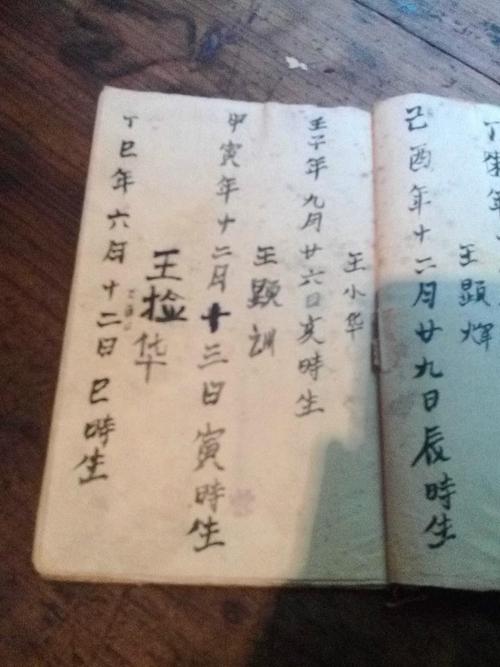 王顕輝
己酉年十二月廿九日辰時生
王小华
壬子年九月廿六日亥時生
王顕训
甲寅年十二月十三日寅時生
王捡华
丁巳年六月十二日巳時生